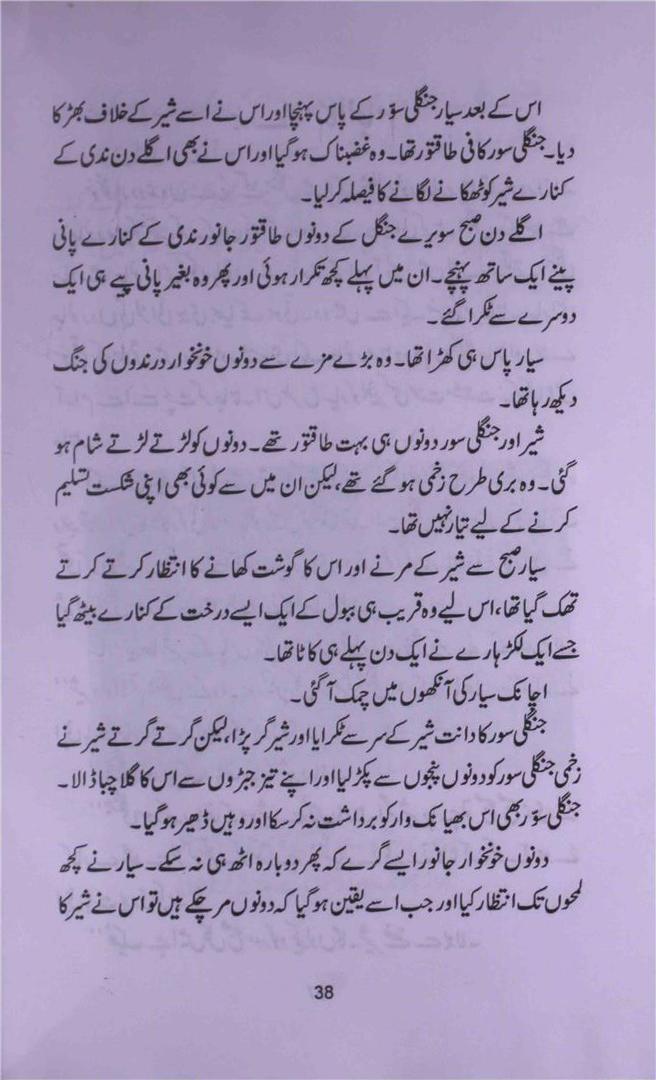 اس کے بعد سیار جنگلی سوّر کے پاس پہنچا اور اس نے اسے شیر کے خلاف بھڑکا
دیا۔ جنگلی سور کافی طاقتور تھا۔ وہ غضبناک ہوگیا اور اس نے بھی اگلے دن ندی کے
کنارے شیر کو ٹھکانے لگانے کا فیصلہ کرلیا۔
اگلے دن صبح سویرے جنگل کے دونوں طاقتور جانور ندی کے کنارے پانی
پینے ایک ساتھ پہنچے۔ ان میں پہلے کچھ تکرار ہوئی اور پھر وہ بغیر پانی پیے ہی ایک
دوسرے سے ٹکرا گئے۔
سیار پاس ہی کھڑا تھا۔ وہ بڑے مزے سے دونوں خونخوار درندوں کی جنگ
دیکھ رہا تھا۔
شیر اور جنگلی سور دونوں ہی بہت طاقتور تھے۔ دونوں کو لڑتے لڑتے شام ہو
گئی۔ وہ بری طرح زخمی ہو گئے تھے، لیکن ان میں سے کوئی بھی اپنی شکست تسلیم
کرنے کے لیے تیار نہیں تھا۔
سیار صبح سے شیر کے مرنے اور اس کا گوشت کھانے کا انتظار کرتے کرتے
تھک گیا تھا، اس لیے وہ قریب ہی ببول کے ایک ایسے درخت کے کنارے بیٹھ گیا
جسے ایک لکڑہارے نے ایک دن پہلے ہی کاٹا تھا۔
اچانک سیار کی آنکھوں میں چمک آگئی۔
جنگلی سور کا دانت شیر کے سر سے ٹکرایا اور شیر گر پڑا، لیکن گرتے گرتے شیر نے
زخمی جنگلی سور کو دونوں پنجوں سے پکڑ لیا اور اپنے تیز جبڑوں سے اس کا گلا چبا ڈالا۔
جنگلی سوّر بھی اس بھیانک وار کو برداشت نہ کرسکا اور وہیں ڈھیر ہوگیا۔
دونوں خونخوار جانور ایسے گرے کہ پھر دوبارہ اٹھ ہی نہ سکے۔ سیار نے کچھ
لمحوں تک انتظار کیا اور جب اسے یقین ہوگیا کہ دونوں مر چکے ہیں تو اس نے شیر کا
38